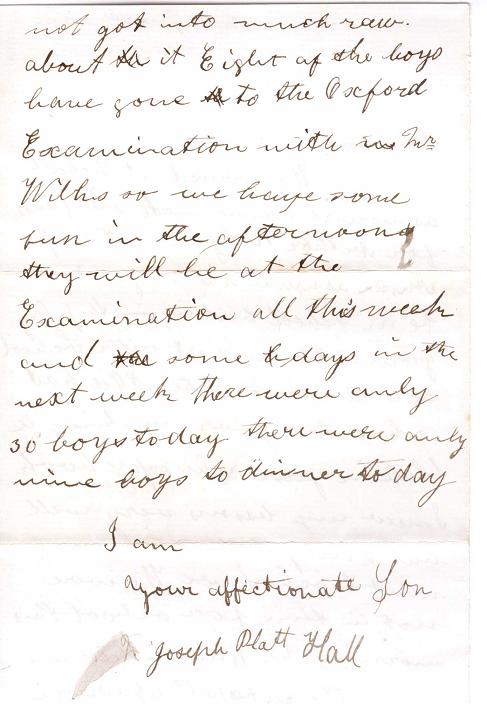 not got into much raw.
about it Eight of the boys
have gone to the Oxford
Examination with Mr
Wilks so we have some
fun in the afternoons
they will be at the
Examination all this week
and some days in the
next week there were only
30 boys today there were only
nine boys to dinner today
I am
your affectionate Son
Joseph Platt Hall